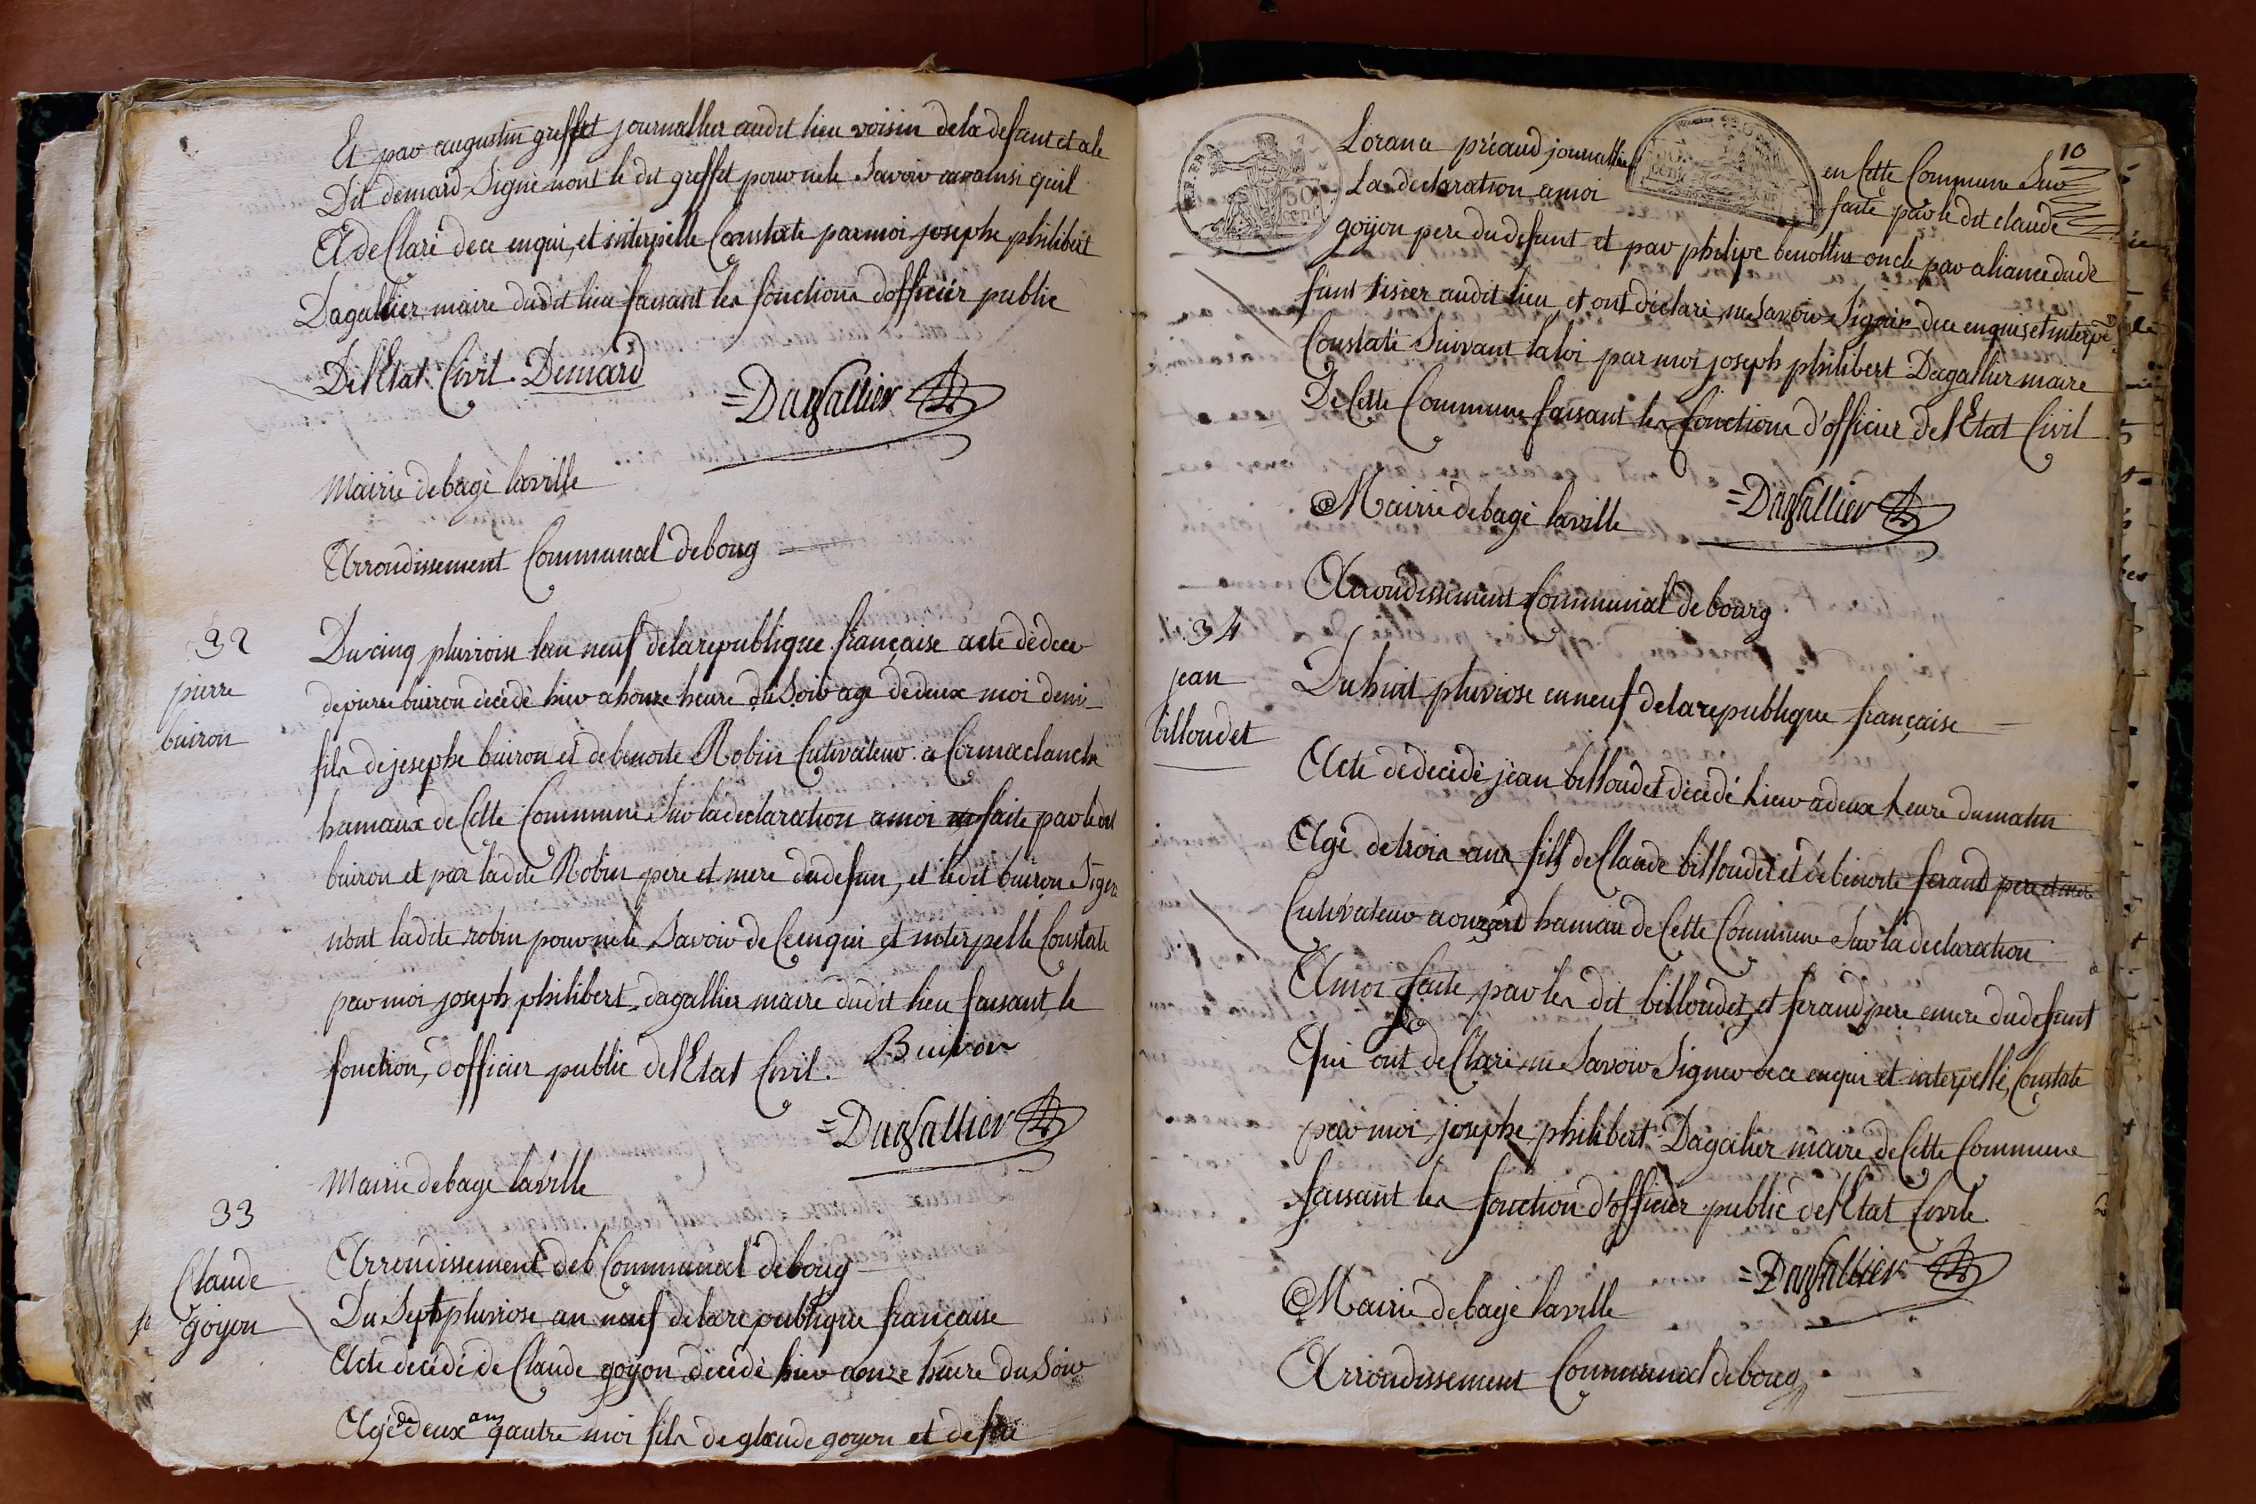 Et par augustin greffet journallier audit lieu voisin dela defunt et ale
Dit demard Signé nont le dit greffet pour nele Savoir ainsi quil
A deClaré dece enqui, et interpelle Constate parmoi josephe philibert
Dagallier maire dudit lieu faisant les fonctions dofficiér public
De l'Etat Civil. Demard
=Dagallier
Mairie debagé laville
Arrondissement Communal deboug
32
pierre
buiron
Du cinq pluviose lan neuf delarepublique française acte dedece
depierre buiron décédé hier a honze heure du Soir agé dedeux moi demi
fils dejosephe buiron et debenoite Robin Cutivateur a Cormaclanche
hamaux de Cette Commune Sur ladeclaration amoi faite par ledit
buiron et par ladite Robin pere et mere dudefun, et ledit buiron Signé
nont ladite robin pour nele Savoir de Ce enqui et interpelle Constate
par moi joseph philibert dagallier maire dudit lieu faisant le
fonction, dofficier public del'Etat Civil. Buiron
=Dagallier
Mairie debage laville
33
Claude
goyon
Arrondissement deb Communal deboug
Du Sept pluviose an neuf delarepublique francaise
Acte decédé de Claude goyon décédé hier aonze heure du Soir
Agé de deux ans quatre moi fils de glaude goyon et de
10
Lorance préaud journallier en Cette Commune Sur
La declaration amoi faite par le dit claude
goyon pere dudefunt et par philipe benottin oncle par aliance dude
funt tisier audit lieu et ont déclaré ne Savoir Signer dece enquis et interpe
Constaté Suivant laloi par moi joseph philibert Dagallier maire
De Cette Commune faisant les fonctions d'officier del'Etat Civil
Mairie debagé laville
=Dagallier
Arrondissement Communal de bourg
34
jean
billoudet
Du huit pluviose enneuf delarepublique française
Acte dedecédé jean billoudet décédé hier adeux heure dumatin
Agé detrois ans fils deClaude billoudet et debenoite ferand pere et mere
Cutivateur aouzard hamau de Cette Commune Sur la declaration
A moi faite par les dit billoudet, et ferand pere emere dudefunt
Qui ont deClaré ne Savoir Signer dece enqui et interpellé, Constate
par moi josephe philibert Dagalier maire de Cette Commune
faisant les fonction d'officier public del'Etat Civile
=Dagallier
Mairie debagé laville
Arrondissement Communal deboug